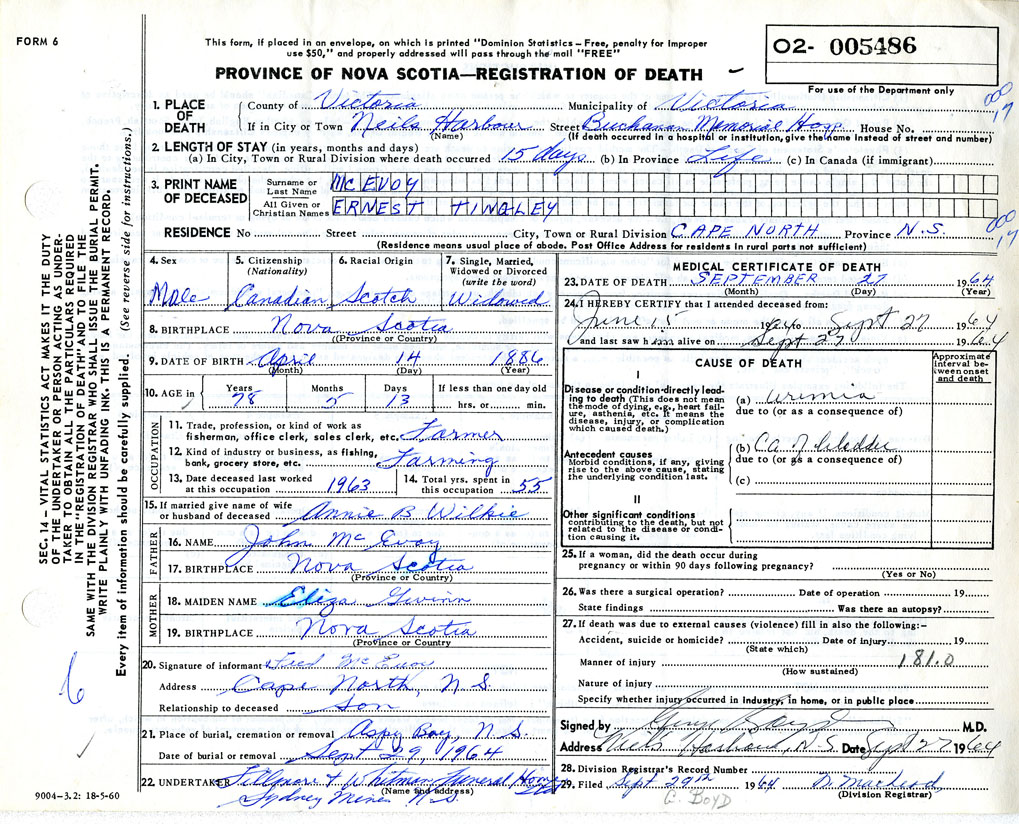 FORM 6
This form, if placed in an envelope, on which is printed "Dominion Statistics – Free, penalty for improper
use $50," and properly addressed will pass through the mail "FREE"
PROVINCE OF NOVA SCOTIA—REGISTRATION OF DEATH
02- 005486
For use of the Department only
1. PLACE OF DEATH County of Victoria Municipality of Victoria
If in City or Town Neils Harbour (Name) Street Buchanan Memorial Hosp House No.
(If death occurred in a hospital or institution, give the name instead of street and number)
000 17
2. LENGTH OF STAY (in years, months and days)
(a) In City, Town or Rural Division where death occurred 15 days (b) In Province Life (c) In Canada (if immigrant)
3. PRINT NAME OF DECEASED
Surname or Last Name McEVOY
All Given or Christian Names ERNEST TINGLEY
RESIDENCE No Street City, Town or Rural Division CAPE NORTH Province N.S.
(Residence means usual place of abode. Post Office Address for residents in rural parts not sufficient)
000 17
4. Sex Male
5. Citizenship (Nationality) Canadian
6. Racial Origin Scotch
7. Single, Married, Widowed or Divorced (write the word) Widowed
8. BIRTHPLACE Nova Scotia
(Province or Country)
9. DATE OF BIRTH April 14 1886
(Month) (Day) (Year)
10. AGE in Years 78 Months 5 Days 13 If less than one day old hrs. or min.
OCCUPATION
11. Trade, profession, or kind of work as
fisherman, office clerk, sales clerk, etc. Farmer
12. Kind of industry or business, as fishing,
bank, grocery store, etc. Farming
13. Date deceased last worked at this occupation 1963
14. Total yrs. spent in this occupation 55
15. If married give name of wife
or husband of deceased Annie B Wilkie
FATHER
16. NAME John McEvoy
17. BIRTHPLACE Nova Scotia
(Province or Country)
MOTHER
18. MAIDEN NAME Eliza Gwinn
19. BIRTHPLACE Nova Scotia
(Province or Country)
20. Signature of informant Fred McEvoy
Address Cape North, N.S.
Relationship to deceased son
21. Place of burial, cremation or removal Aspy Bay, N.S.
Date of burial or removal Sept 29, 1964
22. UNDERTAKER Fillmore & Whitman Funeral Home Ltd
(Name and address)
Sydney Mines N.S.
9004-3.2: 18-5-60
MEDICAL CERTIFICATE OF DEATH
23. DATE OF DEATH SEPTEMBER 27 1964
(Month) (Day) (Year)
24. I HEREBY CERTIFY that I attended deceased from:
June 15 1964 to Sept 27 1964
and last saw him alive on Sept 27 1964
CAUSE OF DEATH
Approximate interval between onset and death
I
Disease or condition directly leading to death (This does not mean the mode of dying, e.g., heart failure, asthenia, etc. It means the disease, injury, or complication which caused death.)
(a) uremia
due to (or as a consequence of)
Antecedent causes
Morbid conditions, if any, giving rise to the above cause, stating the underlying condition last.
(b) Ca of bladder
due to (or as a consequence of)
(c)
II
Other significant conditions
contributing to the death, but not related to the disease or condition causing it.
25. If a woman, did the death occur during
pregnancy or within 90 days following pregnancy?
(Yes or No)
26. Was there a surgical operation? Date of operation 19
State findings Was there an autopsy?
27. If death was due to external causes (violence) fill in also the following:–
Accident, suicide or homicide? Date of injury 19
(State which)
Manner of injury 181.0
(How sustained)
Nature of injury
Specify whether injury occurred in industry, in home, or in public place
Signed by M.D.
Address Neils Harbour, N.S. Date Sept 27 1964
28. Division Registrar's Record Number
29. Filed Sept 29th 1964 D. McLeod
(Division Registrar)
C. BOYD
SEC. 14 – VITAL STATISTICS ACT MAKES IT THE DUTY
OF THE UNDERTAKER OR PERSON ACTING AS UNDER-
TAKER TO OBTAIN ALL THE PARTICULARS REQUIRED
IN THE "REGISTRATION OF DEATH" AND TO FILE THE
SAME WITH THE DIVISION REGISTRAR WHO SHALL ISSUE THE BURIAL PERMIT.
WRITE PLAINLY WITH UNFADING INK. THIS IS A PERMANENT RECORD.
Every item of information should be carefully supplied. (See reverse side for instructions.)
6